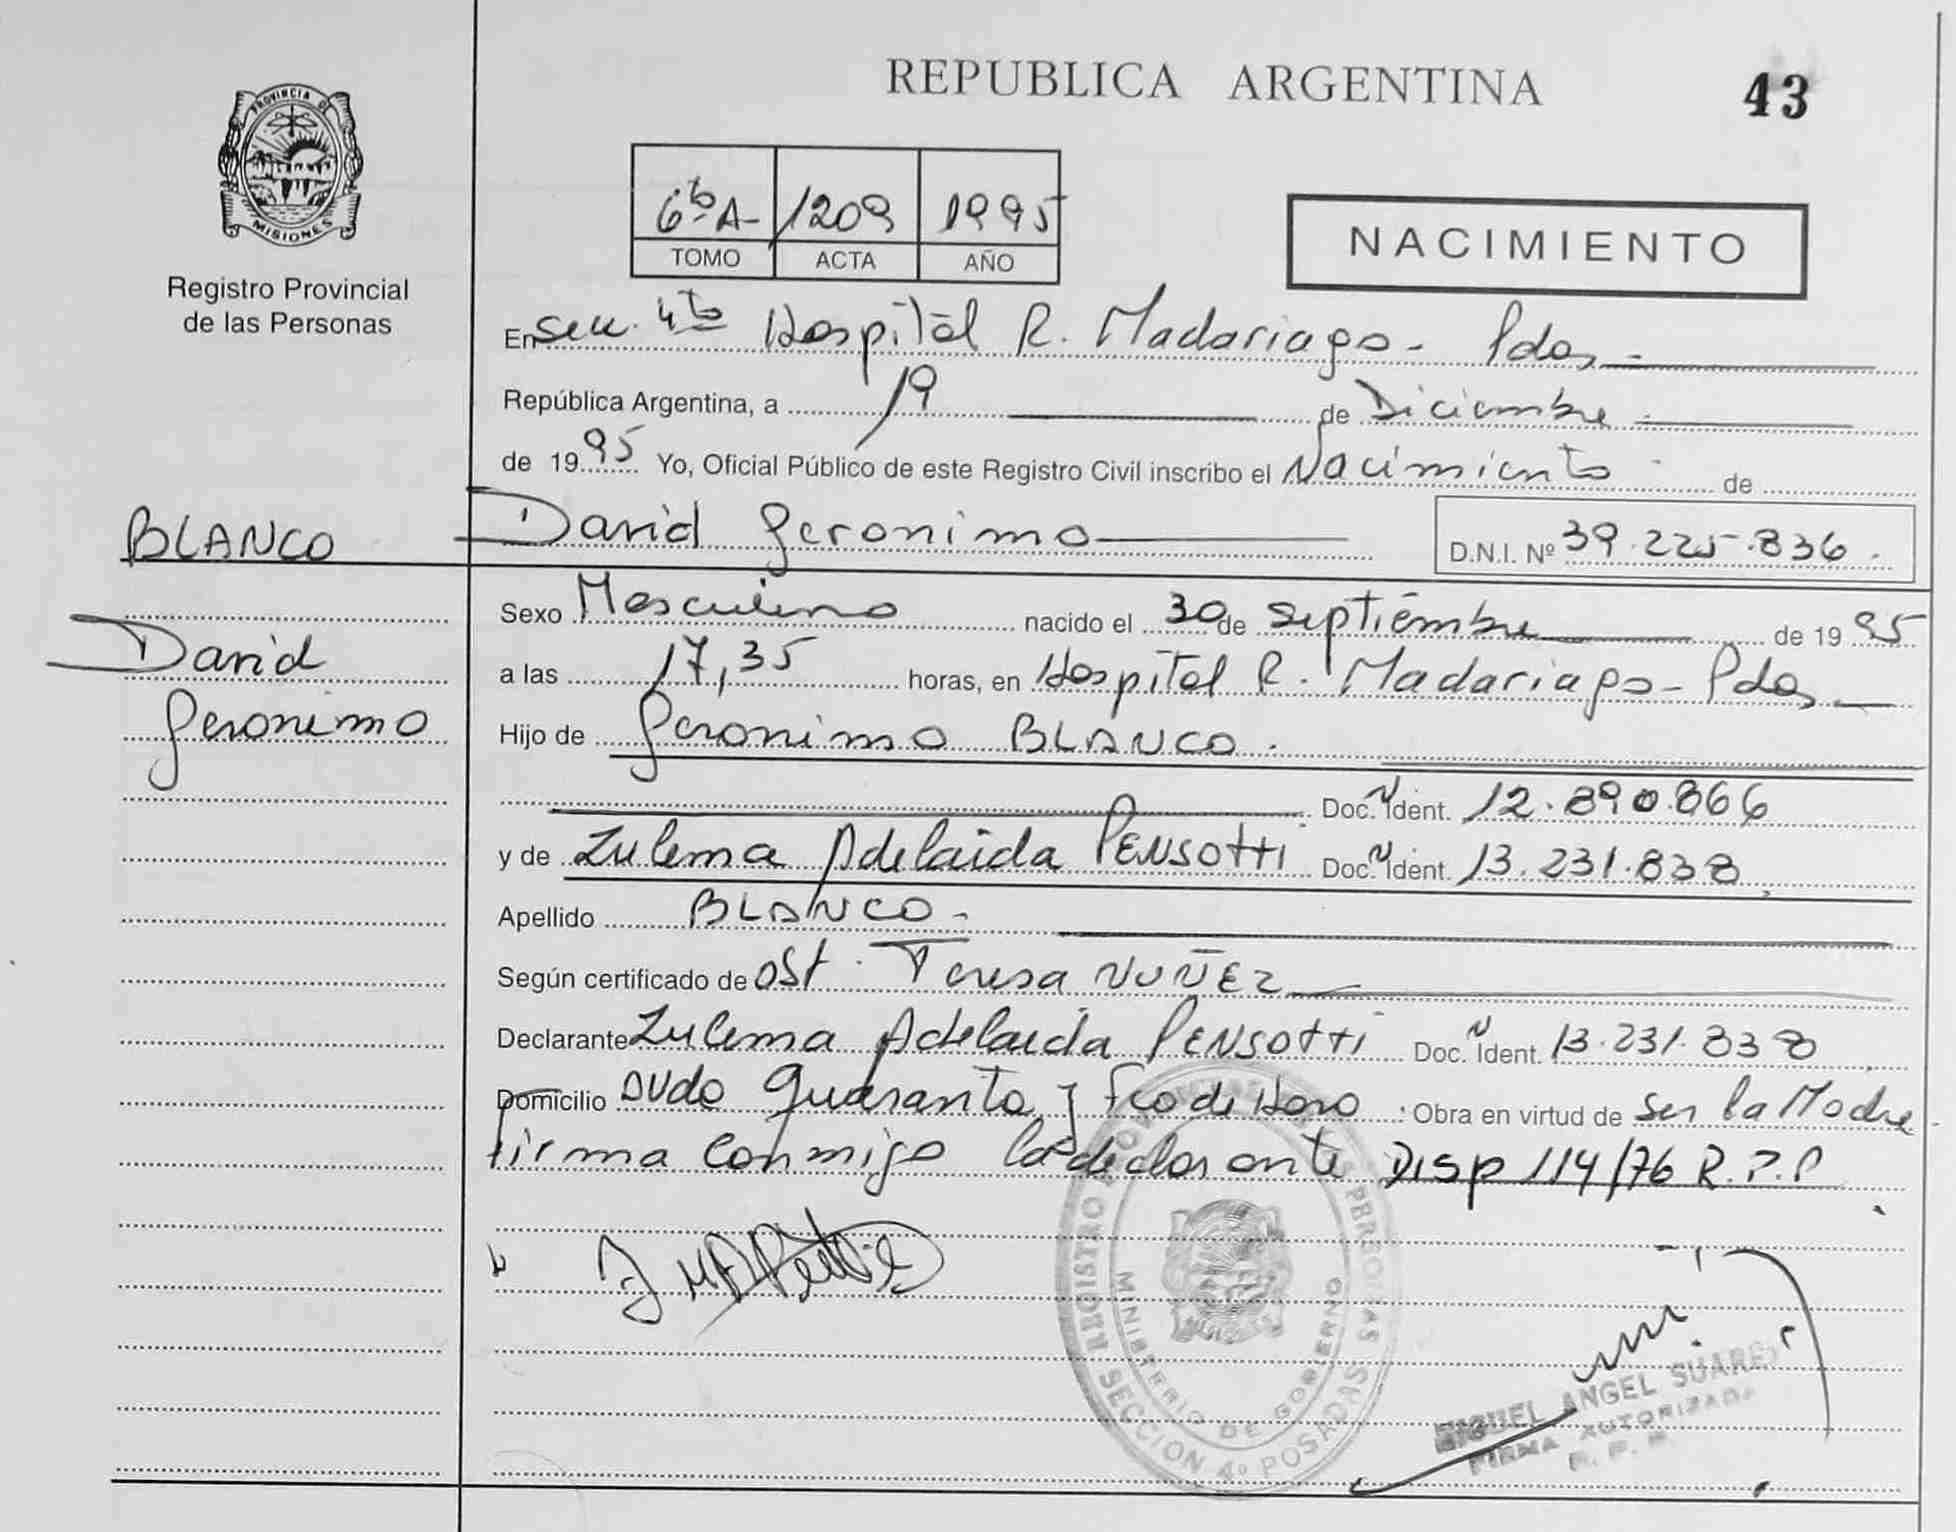 REPUBLICA ARGENTINA
43
PROVINCIA DE
MISIONES
Registro Provincial
de las Personas
6to A- 1209 1995
TOMO ACTA AÑO
NACIMIENTO
En Secc. 4ta Hospital R. Madariaga - Pdas -
República Argentina, a 19 de Diciembre
de 1995 Yo, Oficial Público de este Registro Civil inscribo el Nacimiento de
BLANCO
David Geronimo
D.N.I. Nº 39.225.836.
David
Geronimo
Sexo Masculino nacido el 30 de Septiembre de 1995
a las 17,35 horas, en Hospital R. Madariaga - Pdas
Hijo de Geronimo BLANCO.
Doc. Ident. 12.890.866
y de Zulema Adelaida PENSOTTI Doc. Ident. 13.231.838
Apellido BLANCO -
Según certificado de OST. Teresa NUÑEZ
Declarante Zulema Adelaida PENSOTTI Doc. Ident. 13.231.838
Domicilio Avda Quaranta y Fco de Haro. Obra en virtud de ser la Madre -
firma conmigo la declarante Disp 114/76 R.P.P
REGISTRO PROVINCIAL DE LAS PERSONAS
MINISTERIO DE GOBIERNO
SECCION 4º POSADAS
MIGUEL ANGEL SUAREZ
FIRMA AUTORIZADA
R. P. P.